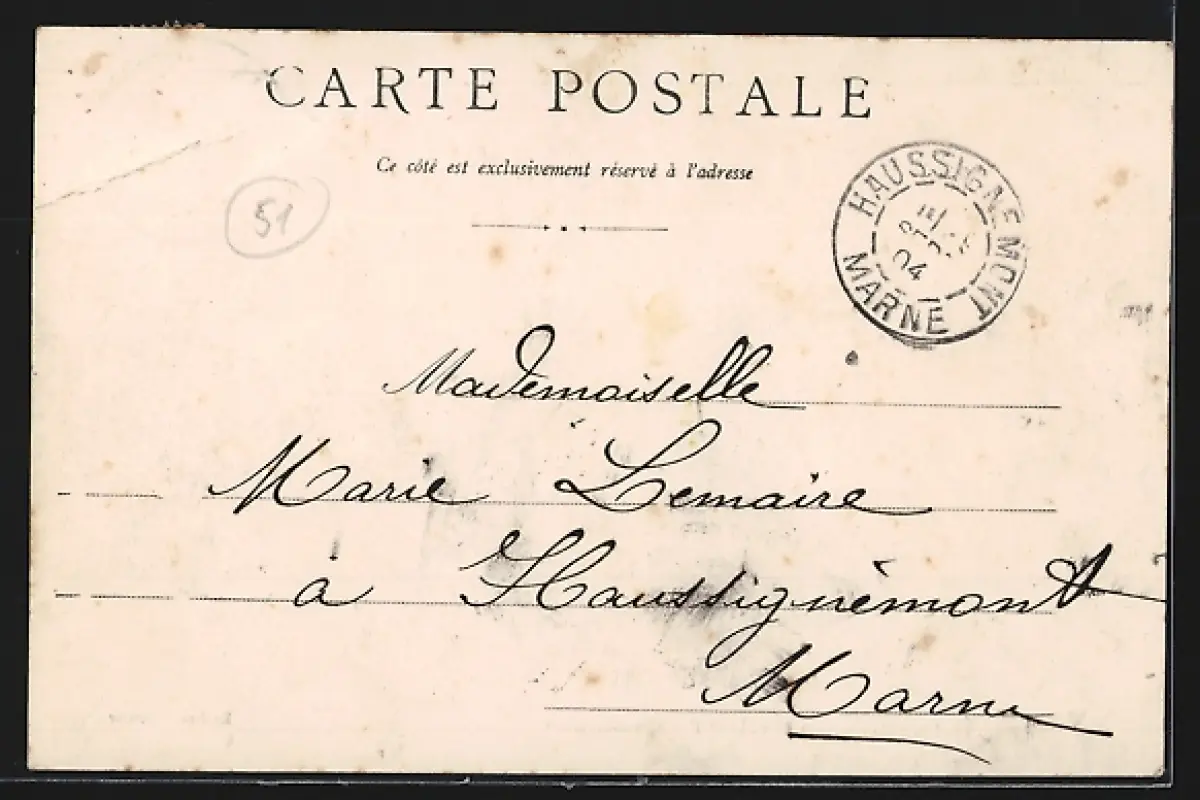 CARTE POSTALE
Ce côté est exclusivement réservé à l'adresse
51
HAUSSIGNEMONT
04
MARNE
Mademoiselle
Marie Lemaire
à Haussignémont
Marne